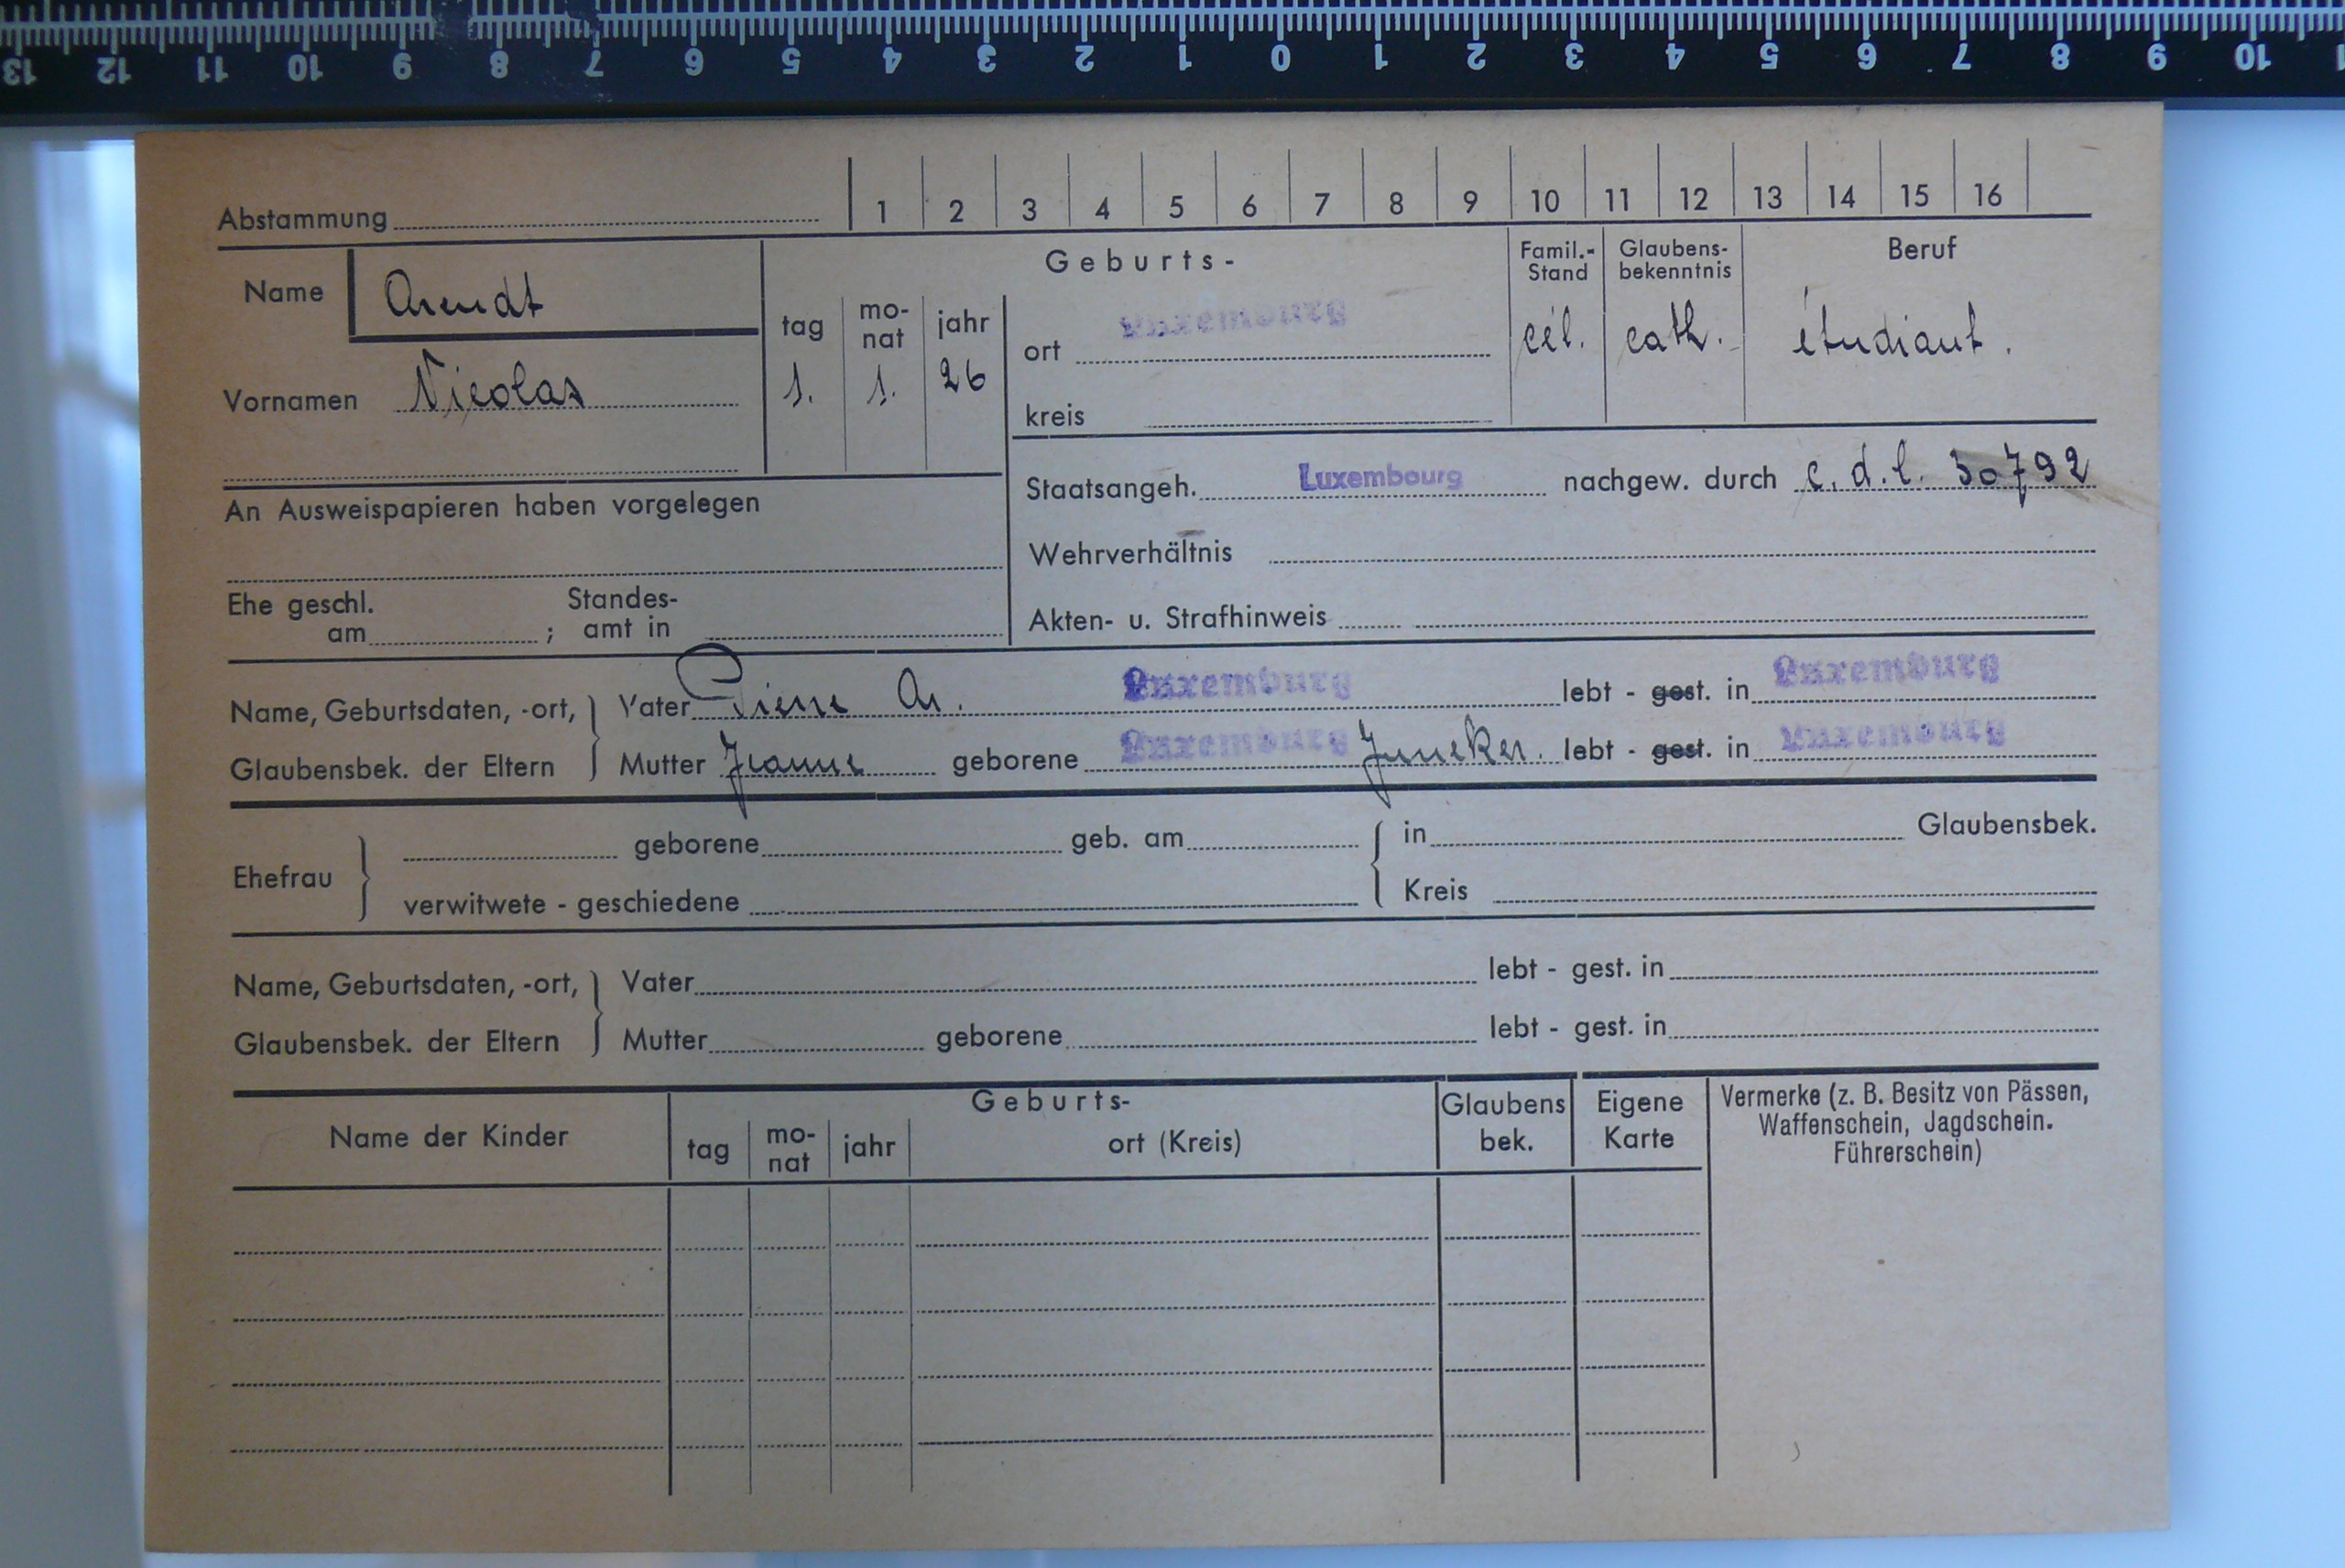 13 12 11 10 9 8 7 6 5 4 3 2 1 0 1 2 3 4 5 6 7 8 9 10
Abstammung 1 2 3 4 5 6 7 8 9 10 11 12 13 14 15 16
Name Arendt
Vornamen Nicolas
Geburts-
tag mo-nat jahr
1. 1. 26
ort Luxemburg
kreis
Famil.-Stand
cél.
Glaubens-bekenntnis
cath.
Beruf
étudiant.
An Ausweispapieren haben vorgelegen
Staatsangeh. Luxembourg nachgew. durch c. d. l. 30792
Wehrverhältnis
Ehe geschl. am ; Standes-amt in
Akten- u. Strafhinweis
Name, Geburtsdaten, -ort, Vater Pierre Ar. Luxemburg lebt - gest. in Luxemburg
Glaubensbek. der Eltern Mutter Jeanne geborene Luxemburg Juncker. lebt - gest. in Luxemburg
Ehefrau geborene geb. am in Glaubensbek.
verwitwete - geschiedene Kreis
Name, Geburtsdaten, -ort, Vater lebt - gest. in
Glaubensbek. der Eltern Mutter geborene lebt - gest. in
Name der Kinder
Geburts-
tag mo-nat jahr ort (Kreis)
Glaubens bek.
Eigene Karte
Vermerke (z. B. Besitz von Pässen,
Waffenschein, Jagdschein.
Führerschein)